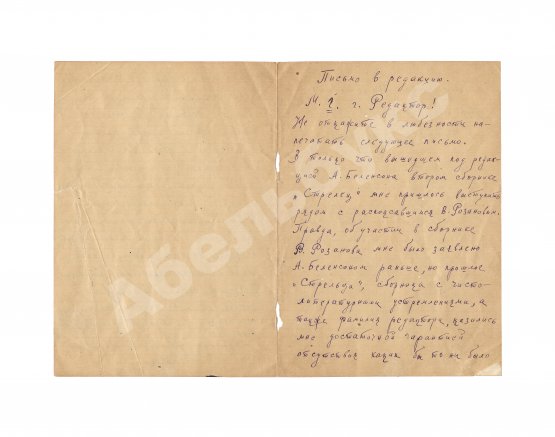 Письмо в редакцию.
М. г. г. Редактор!
Не откажите в любезности на-
печатать следующее письмо.
В только что вышедшем под редак-
цией А. Беленсона втором сборнике
„Стрелец" мне пришлось выступить
рядом с В. Розановым.
Правда, об участии в сборнике
В. Розанова мне было заявлено
А. Беленсоном раньше, но прошлое
„Стрельца", сборника с чисто-
литературными устремлениями, а
также фамилия редактора, казались
мне достаточной гарантией
отсутствия каких бы то ни было
Абельбукс